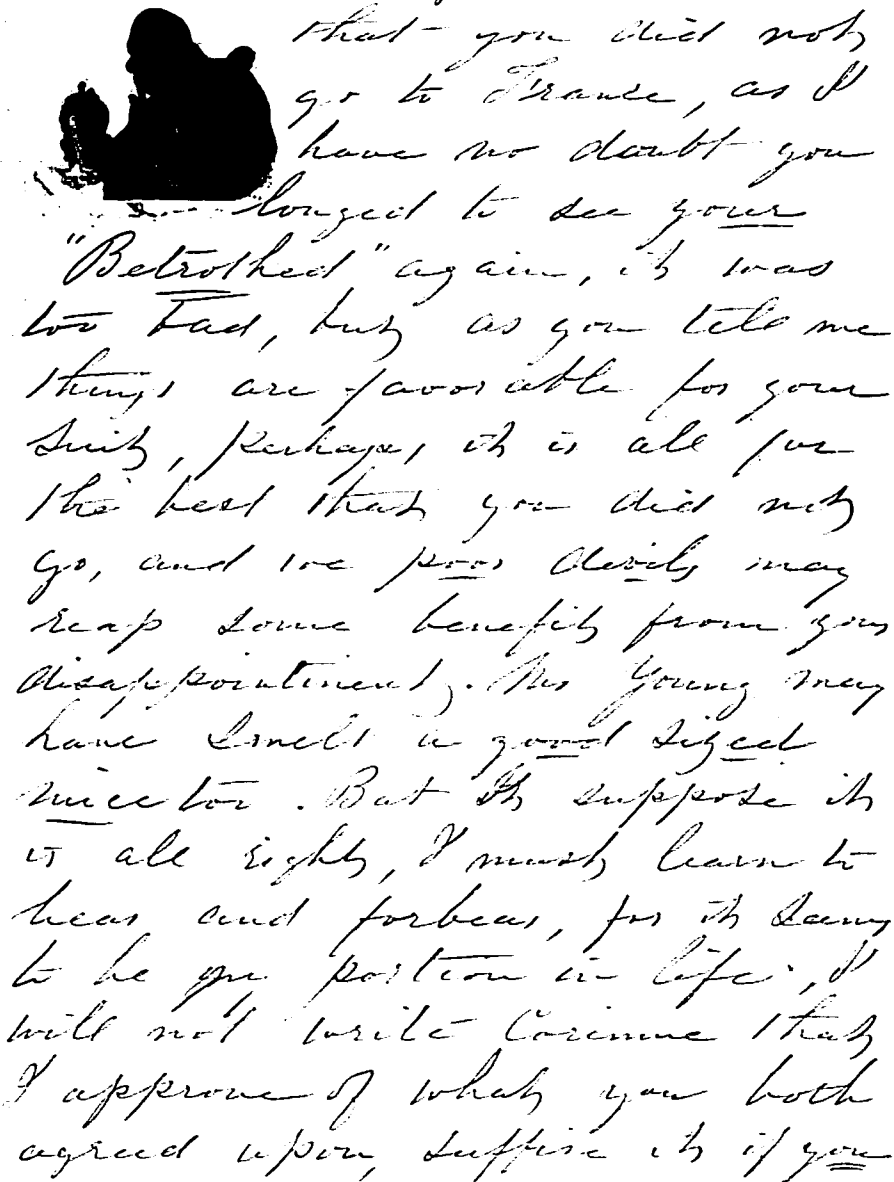 that you did not
go to France, as I
have no doubt you
longed to see your
"Betrothed" again, it was
too bad, but as you tell me
things are favorable for your
suit, perhaps it is all for
the best that you did not
go, and we poor devils may
reap some benefit from your
disappointment. Mr Young may
have smelt a good sized
mice too. But I suppose it
is all right, I must learn to
bear and forbear, for it seems
to be my portion in life. I
will not write Corinne that
I approve of what you both
agreed upon, suffice it if you